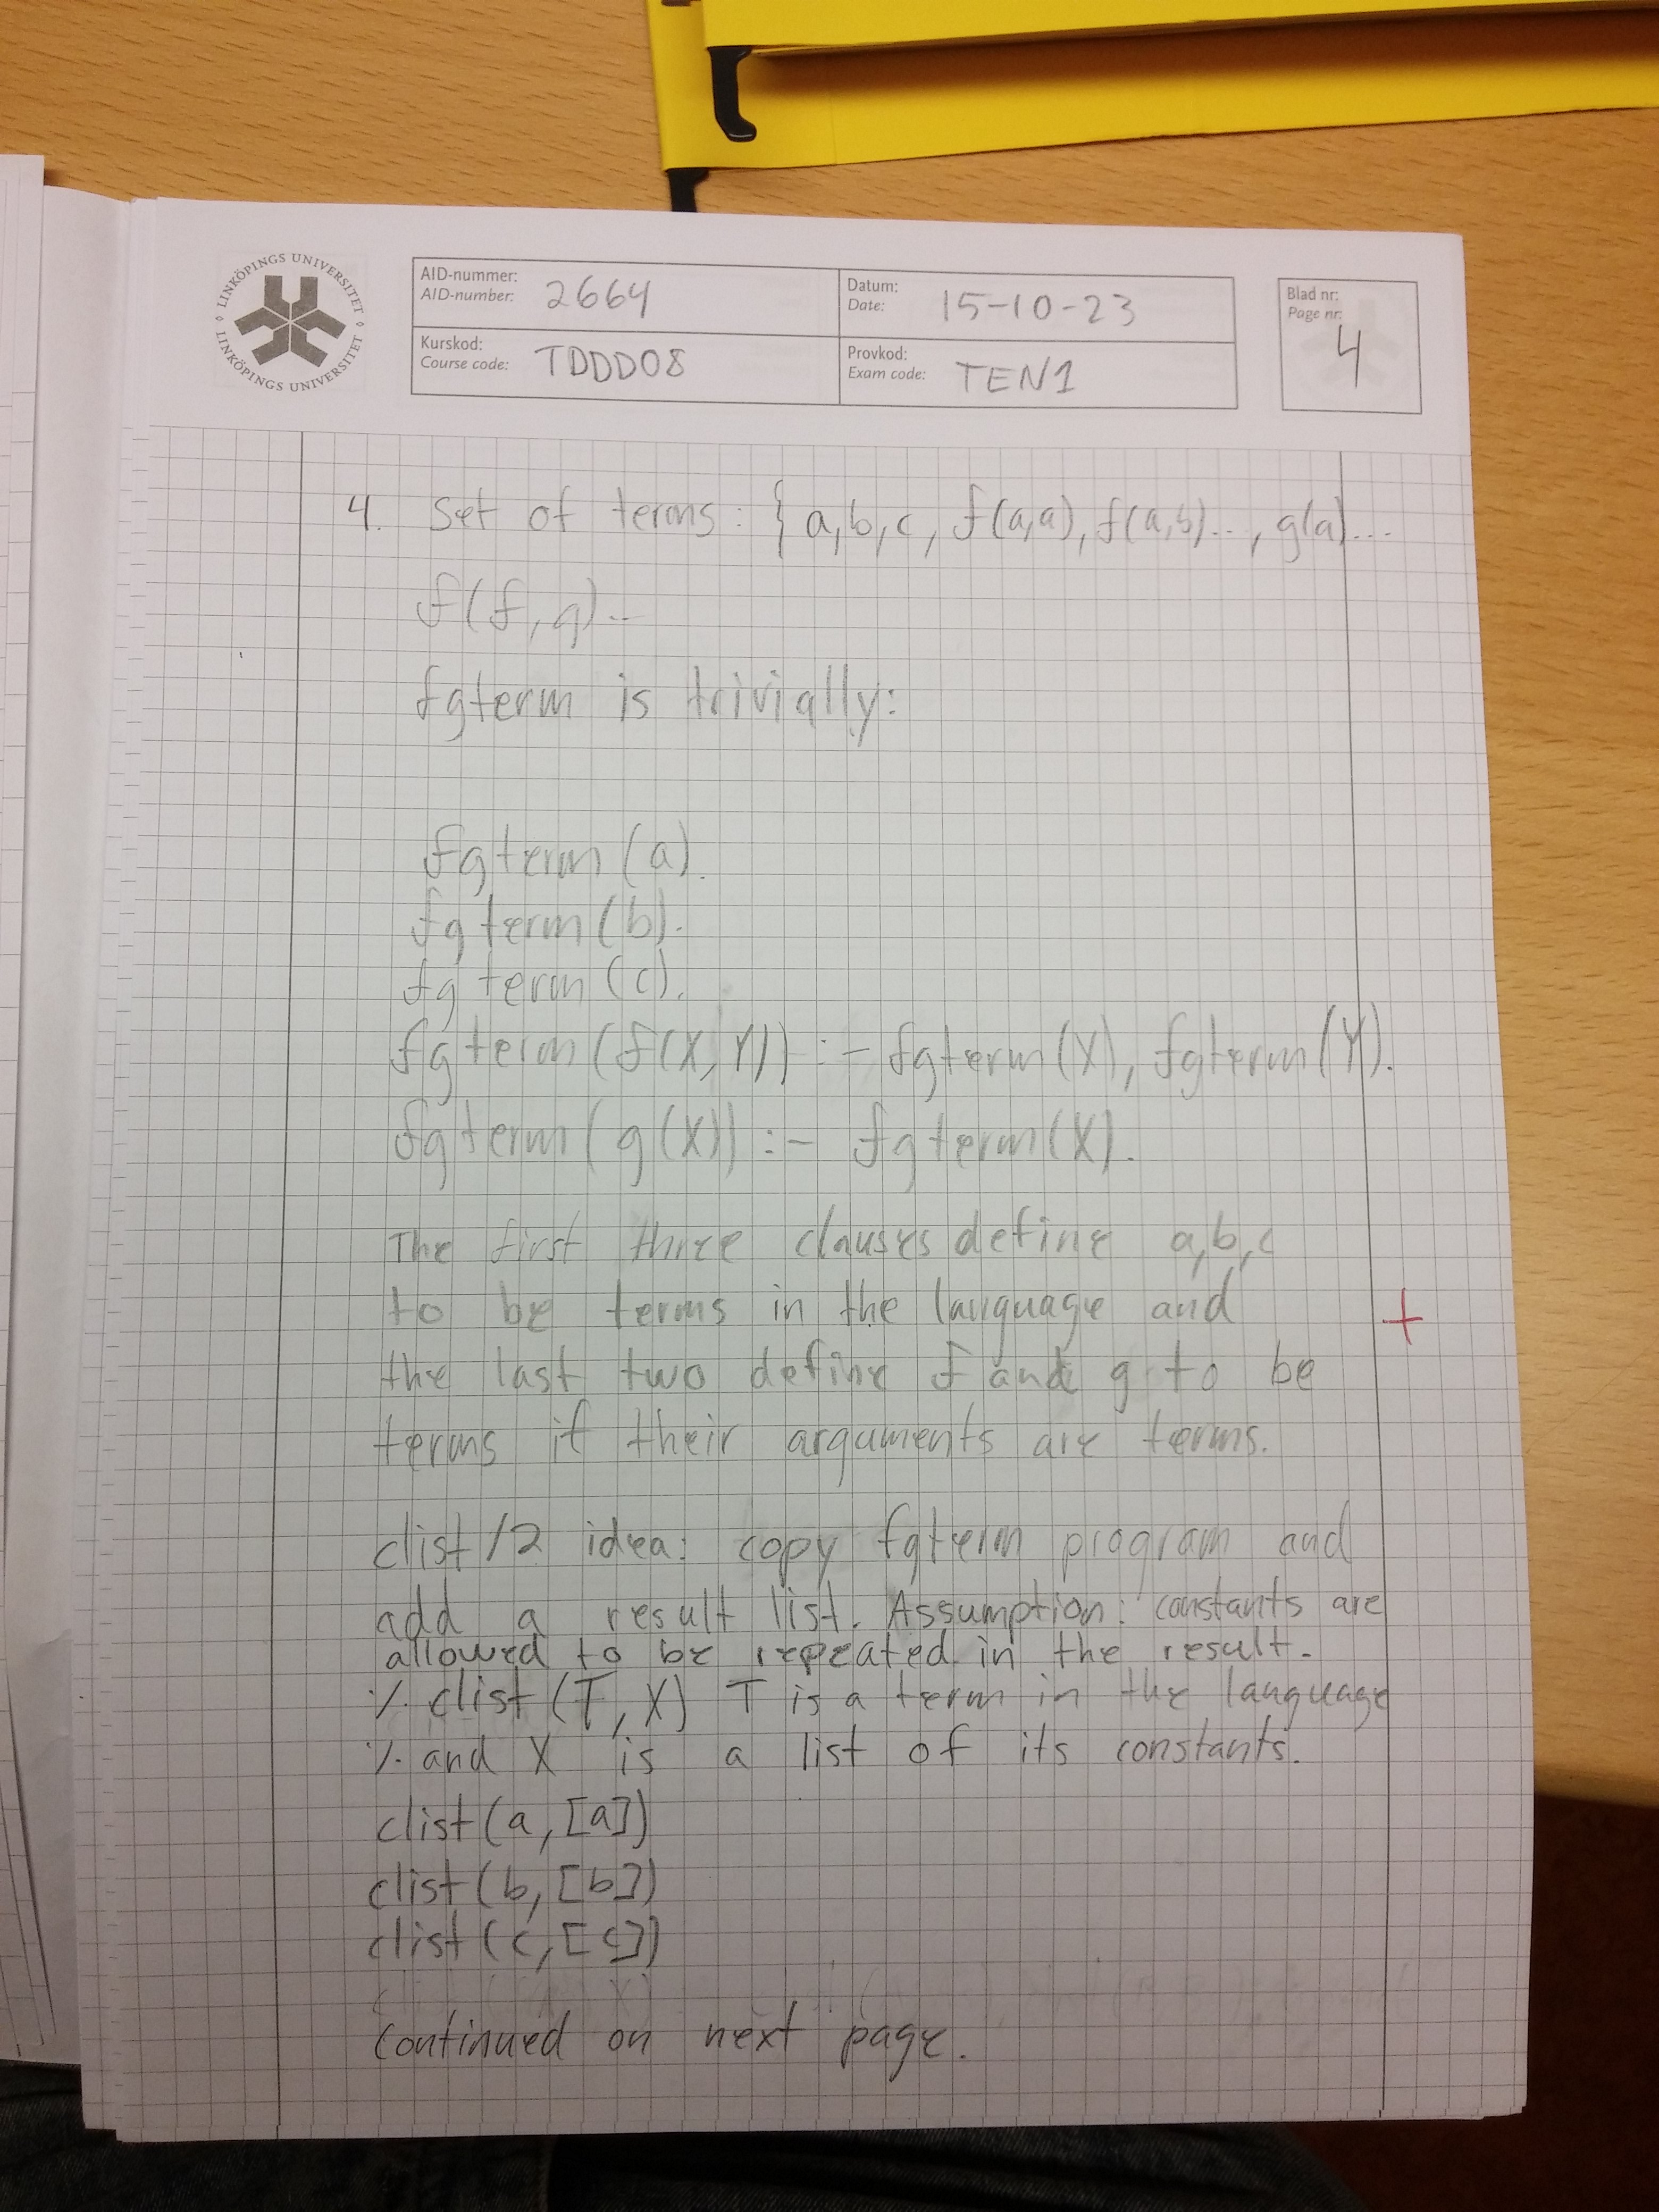 LINKÖPINGS UNIVERSITET
LINKÖPINGS UNIVERSITET
AID-nummer:
AID-number: 2664
Datum:
Date: 15-10-23
Blad nr:
Page nr:
4
Kurskod:
Course code: TDDD08
Provkod:
Exam code: TEN1
4. Set of terms: { a,b,c, f(a,a), f(a,b).., g(a)...
f(f,g)..
fgterm is trivially:
fgterm(a).
fgterm(b).
fgterm(c).
fgterm(f(X,Y)) :- fgterm(X), fgterm(Y).
fgterm(g(X)) :- fgterm(X).
The first three clauses define a,b,c
to be terms in the language and
+
the last two define f and g to be
terms if their arguments are terms.
clist/2 idea: copy fgterm program and
add a result list. Assumption: constants are
allowed to be repeated in the result.
% clist(T,X) T is a term in the language
% and X is a list of its constants.
clist(a,[a])
clist(b,[b])
clist(c,[c])
continued on next page.